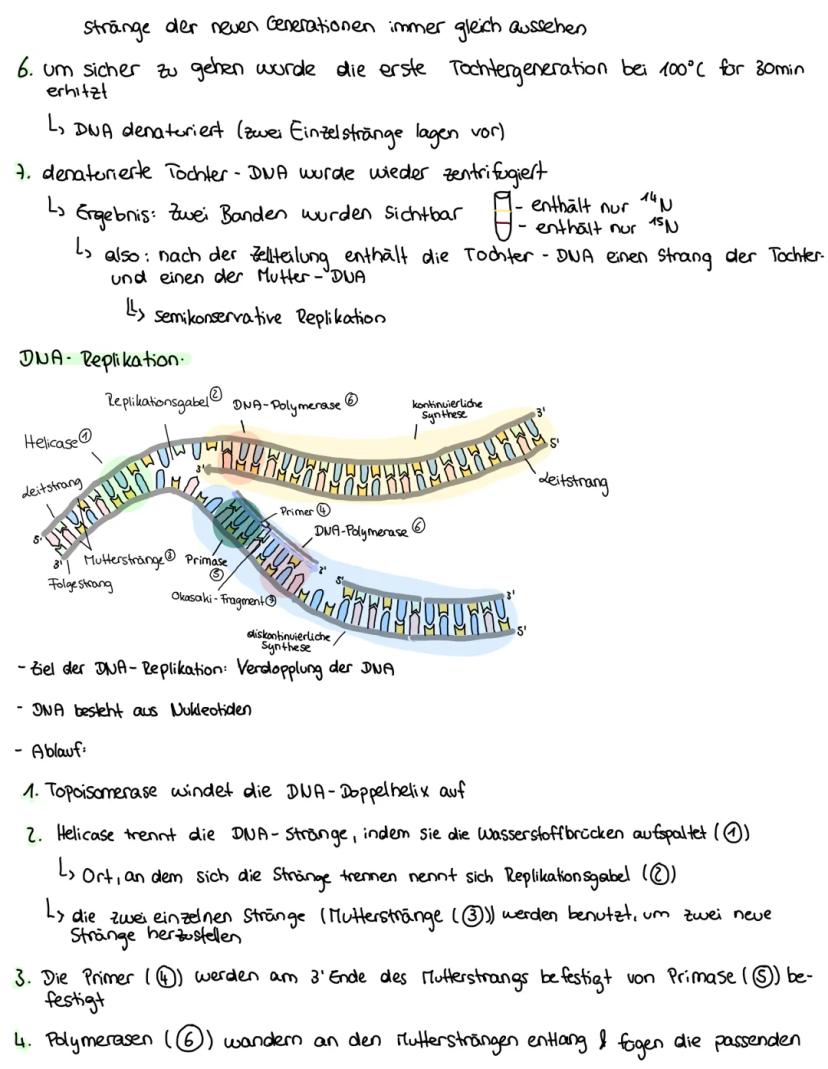 Stränge der neuen Generationen immer gleich aussehen
6. um sicher zu gehen wurde die erste Tochtergeneration bei 100°C für 30min
erhitzt
↳ DNA denaturiert (zwei Einzelstränge lagen vor)
7. denaturierte Tochter-DNA wurde wieder zentrifugiert
↳ Ergebnis: Zwei Banden wurden sichtbar
- enthält nur ¹⁴N
- enthält nur ¹⁵N
↳ also: nach der Zellteilung enthält die Tochter-DNA einen Strang der Tochter-
und einen der Mutter-DNA
↳ semikonservative Replikation
DNA-Replikation:
Replikationsgabel ②
DNA-Polymerase ⑥
kontinuierliche
Synthese
3'
5'
Helicase ①
3'
Leitstrang
Leitstrang
Primer ④
DNA-Polymerase ⑥
5'
3'
Mutterstränge ③
Primase
⑤
Folgestrang
Okasaki-Fragment ⑦
3'
5'
3'
5'
diskontinuierliche
Synthese
- Ziel der DNA-Replikation: Verdopplung der DNA
- DNA besteht aus Nukleotiden
- Ablauf:
1. Topoisomerase windet die DNA-Doppelhelix auf
2. Helicase trennt die DNA-Stränge, indem sie die Wasserstoffbrücken aufspaltet (①)
↳ Ort, an dem sich die Stränge trennen nennt sich Replikationsgabel (②)
↳ die zwei einzelnen Stränge (Mutterstränge (③)) werden benutzt, um zwei neue
Stränge herzustellen
3. Die Primer (④) werden am 3' Ende des Mutterstrangs befestigt von Primase (⑤) be-
festigt
4. Polymerasen (⑥) wandern an den Muttersträngen entlang & fügen die passenden